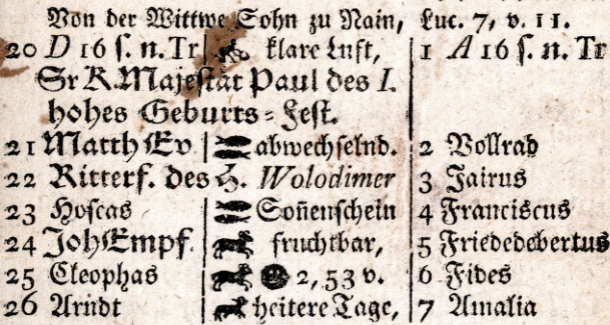 Von der Wittwe Sohn zu Nain, Luc. 7, v. 11.
20 D 16 s. n. Tr klare Luft, 1 A 16 s. n. Tr
Sr K. Majestät Paul des I.
hohes Geburts-Fest.
21 Matth Ev abwechselnd. 2 Vollrad
22 Ritterf. des H. Wolodimer 3 Jairus
23 Hoseas Soñenschein 4 Franciscus
24 Joh Empf. fruchtbar, 5 Friededebertus
25 Cleophas 2, 53 v. 6 Fides
26 Arndt heitere Tage, 7 Amalia